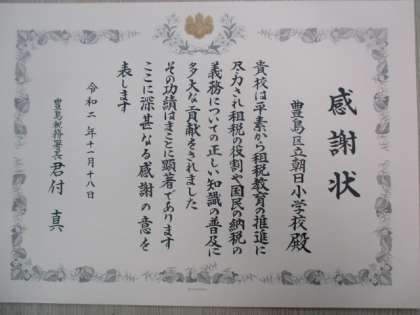 感謝状
豊島区立朝日小学校殿
貴校は平素から租税教育の推進に
尽力され租税の役割や国民の納税の
義務についての正しい知識の普及に
多大な貢献をされました
その功績はまことに顕著であります
ここに深甚なる感謝の意を
表します
令和二年十一月十八日
豊島税務署長 君付 真